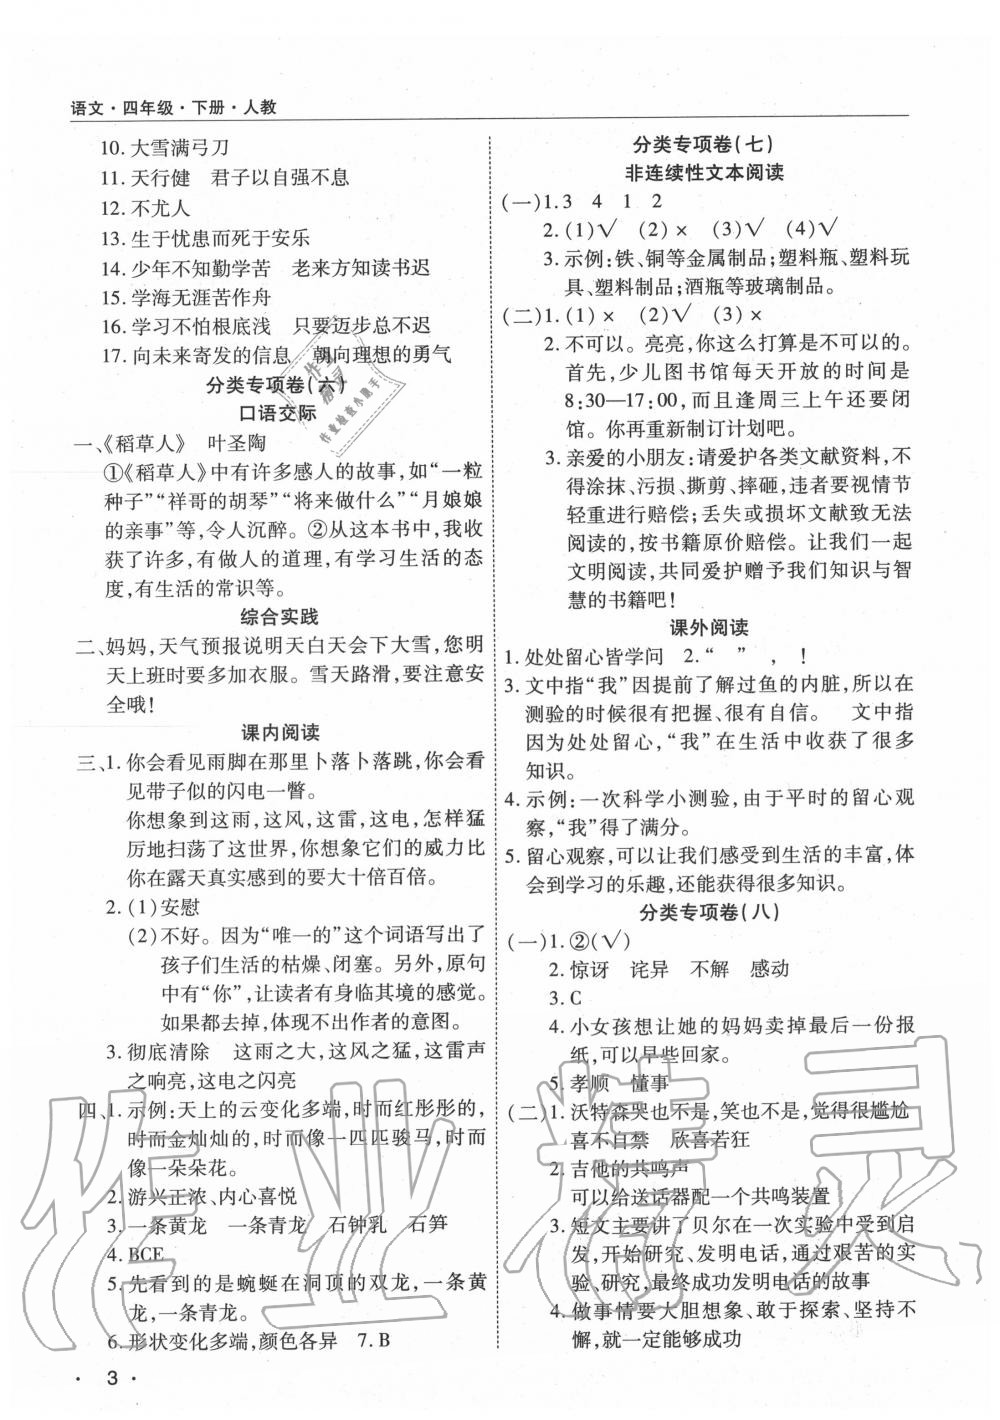 语文·四年级·下册·人教
10. 大雪满弓刀
11. 天行健　君子以自强不息
12. 不尤人
13. 生于忧患而死于安乐
14. 少年不知勤学苦　老来方知读书迟
15. 学海无涯苦作舟
16. 学习不怕根底浅　只要迈步总不迟
17. 向未来寄发的信息　朝向理想的勇气
分类专项卷(六)
口语交际
一、《稻草人》　叶圣陶
①《稻草人》中有许多感人的故事,如“一粒
种子”“祥哥的胡琴”“将来做什么”“月娘娘
的亲事”等,令人沉醉。②从这本书中,我收
获了许多,有做人的道理,有学习生活的态
度,有生活的常识等。
综合实践
二、妈妈,天气预报说明天白天会下大雪,您明
天上班时要多加衣服。雪天路滑,要注意安
全哦!
课内阅读
三、1. 你会看见雨脚在那里卜落卜落跳,你会看
见带子似的闪电一瞥。
你想象到这雨,这风,这雷,这电,怎样猛
厉地扫荡了这世界,你想象它们的威力比
你在露天真实感到的要大十倍百倍。
2. (1)安慰
(2)不好。因为“唯一的”这个词语写出了
孩子们生活的枯燥、闭塞。另外,原句
中有“你”,让读者有身临其境的感觉。
如果都去掉,体现不出作者的意图。
3. 彻底清除　这雨之大,这风之猛,这雷声
之响亮,这电之闪亮
四、1. 示例:天上的云变化多端,时而红彤彤的,
时而金灿灿的,时而像一匹匹骏马,时而
像一朵朵花。
2. 游兴正浓、内心喜悦
3. 一条黄龙　一条青龙　石钟乳　石笋
4. BCE
5. 先看到的是蜿蜒在洞顶的双龙,一条黄
龙,一条青龙。
6. 形状变化多端,颜色各异　7. B
· 3 ·
分类专项卷(七)
非连续性文本阅读
(一)1. 3　4　1　2
2. (1)√　(2)×　(3)√　(4)√
3. 示例:铁、铜等金属制品;塑料瓶、塑料玩
具、塑料制品;酒瓶等玻璃制品。
(二)1. (1)×　(2)√　(3)×
2. 不可以。亮亮,你这么打算是不可以的。
首先,少儿图书馆每天开放的时间是
8:30—17:00,而且逢周三上午还要闭
馆。你再重新制订计划吧。
3. 亲爱的小朋友:请爱护各类文献资料,不
得涂抹、污损、撕剪、摔砸,违者要视情节
轻重进行赔偿;丢失或损坏文献致无法
阅读的,按书籍原价赔偿。让我们一起
文明阅读,共同爱护赠予我们知识与智
慧的书籍吧!
课外阅读
1. 处处留心皆学问　2. “　”　,　!
3. 文中指“我”因提前了解过鱼的内脏,所以在
测验的时候很有把握、很有自信。　文中指
因为处处留心,“我”在生活中收获了很多
知识。
4. 示例:一次科学小测验,由于平时的留心观
察,“我”得了满分。
5. 留心观察,可以让我们感受到生活的丰富,体
会到学习的乐趣,还能获得很多知识。
分类专项卷(八)
(一)1. ②(√)
2. 惊讶　诧异　不解　感动
3. C
4. 小女孩想让她的妈妈卖掉最后一份报
纸,可以早些回家。
5. 孝顺　懂事
(二)1. 沃特森哭也不是,笑也不是,觉得很尴尬
喜不自禁　欣喜若狂
2. 吉他的共鸣声
可以给送话器配一个共鸣装置
3. 短文主要讲了贝尔在一次实验中受到启
发,开始研究、发明电话,通过艰苦的实
验、研究,最终成功发明电话的故事
4. 做事情要大胆想象、敢于探索、坚持不
懈,就一定能够成功
作业精灵
作业精灵
作业检查小助手